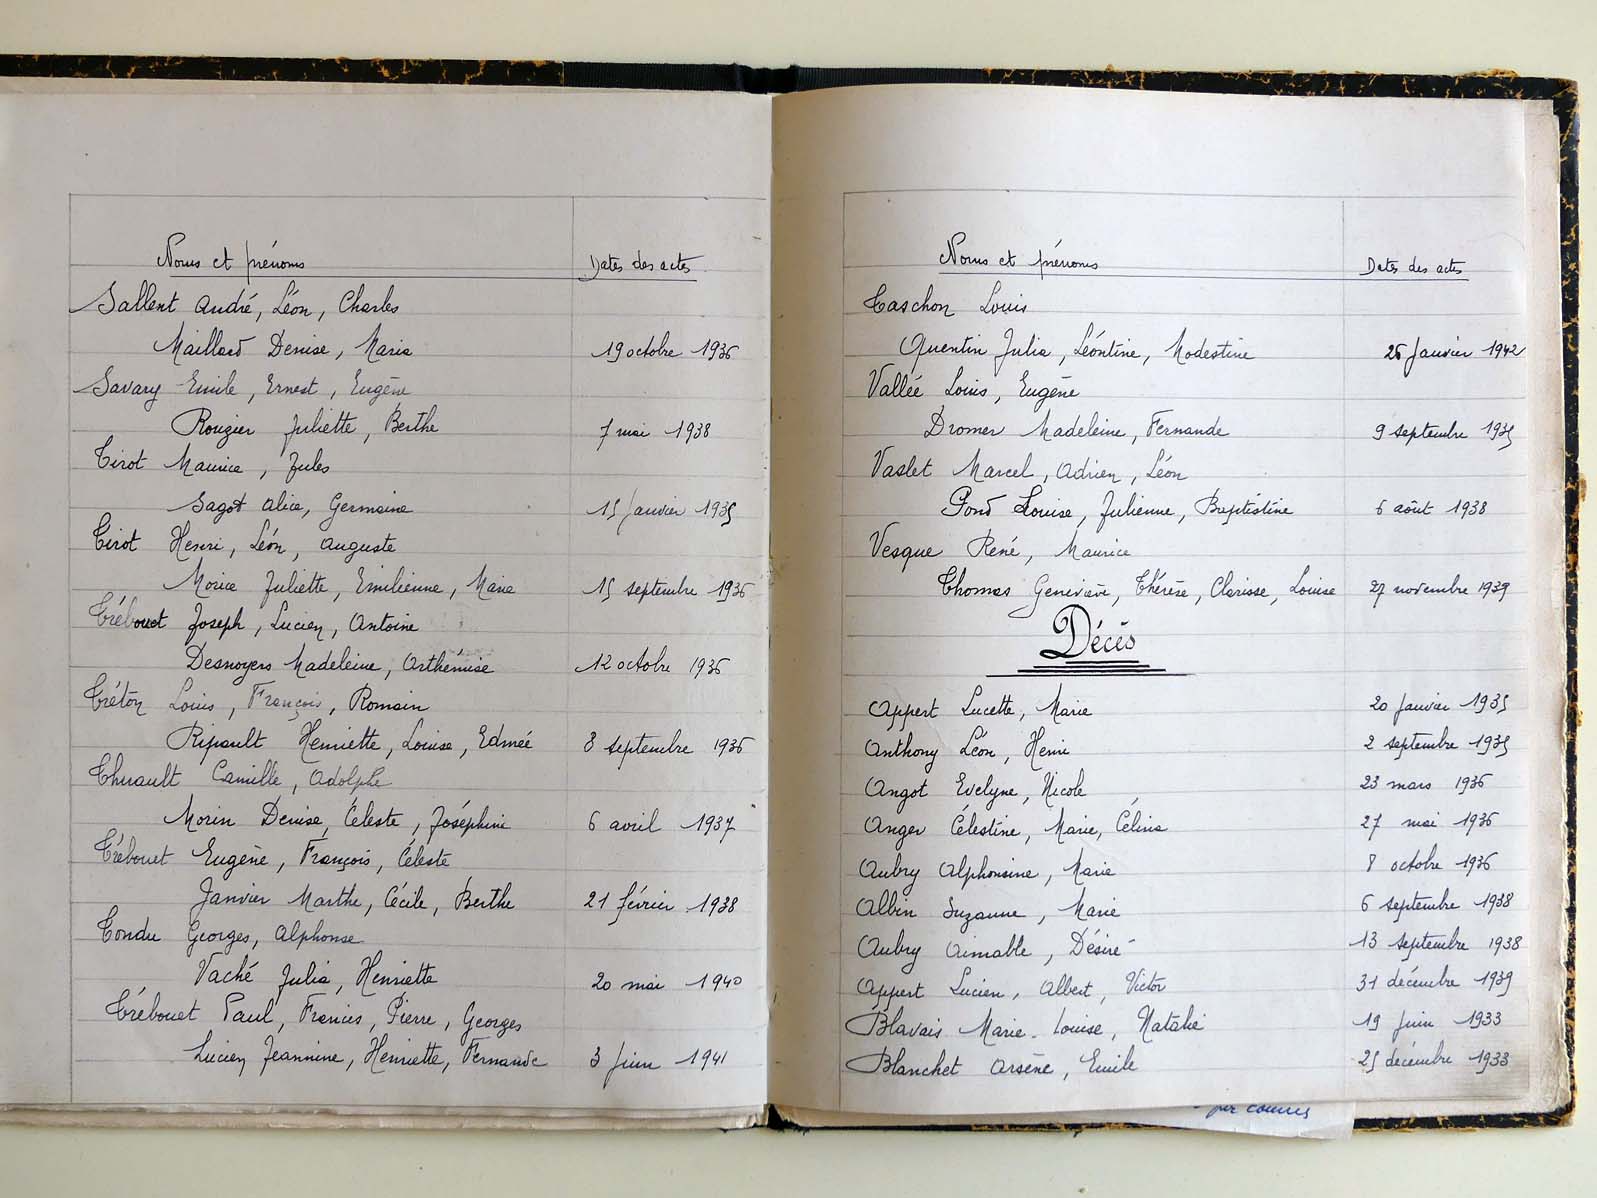 Noms et prénoms Dates des actes
Sallent André, Léon, Charles
Maillard Denise, Maria 19 octobre 1936
Savary Emile, Ernest, Eugène
Rougier Juliette, Berthe 7 mai 1938
Tirot Maurice, Jules
Sagot Alice, Germaine 15 Janvier 1935
Tirot Henri, Léon, Auguste
Morice Juliette, Emilienne, Marie 15 septembre 1936
Trébouet Joseph, Lucien, Antoine
Desnoyers Madeleine, Arthémise 12 octobre 1936
Tréton Louis, François, Romain
Ripault Henriette, Louise, Edmée 8 septembre 1936
Thuault Camille, Adolphe
Morin Denise, Céleste, Joséphine 6 avril 1937
Trébouet Eugène, François, Céleste
Janvier Marthe, Cécile, Berthe 21 février 1938
Tondu Georges, Alphonse
Vaché Julia, Henriette 20 mai 1940
Trébouet Paul, Francis, Pierre, Georges
Lucien Jeannine, Henriette, Fernande 3 Juin 1941
Noms et prénoms Dates des actes
Taschon Louis
Quentin Julia, Léontine, Modestine 26 Janvier 1942
Vallée Louis, Eugène
Dromer Madeleine, Fernande 9 septembre 1935
Vaslet Marcel, Adrien, Léon
Pond Louise, Julienne, Baptistine 6 août 1938
Vesque René, Maurice
Thomas Geneviève, Thérèse, Clarisse, Louise 27 novembre 1939
Décès
Appert Lucette, Marie 20 Janvier 1935
Anthony Léon, Henri 2 septembre 1935
Angot Evelyne, Nicole 23 mars 1936
Anger Célestine, Marie, Célina 27 mai 1936
Aubry Alphonsine, Marie 8 octobre 1936
Albin Suzanne, Marie 6 septembre 1938
Aubry Aimable, Désiré 13 septembre 1938
Appert Lucien, Albert, Victor 31 décembre 1939
Blavais Marie-Louise, Natalie 19 Juin 1933
Blanchet Arsène, Emile 25 décembre 1933